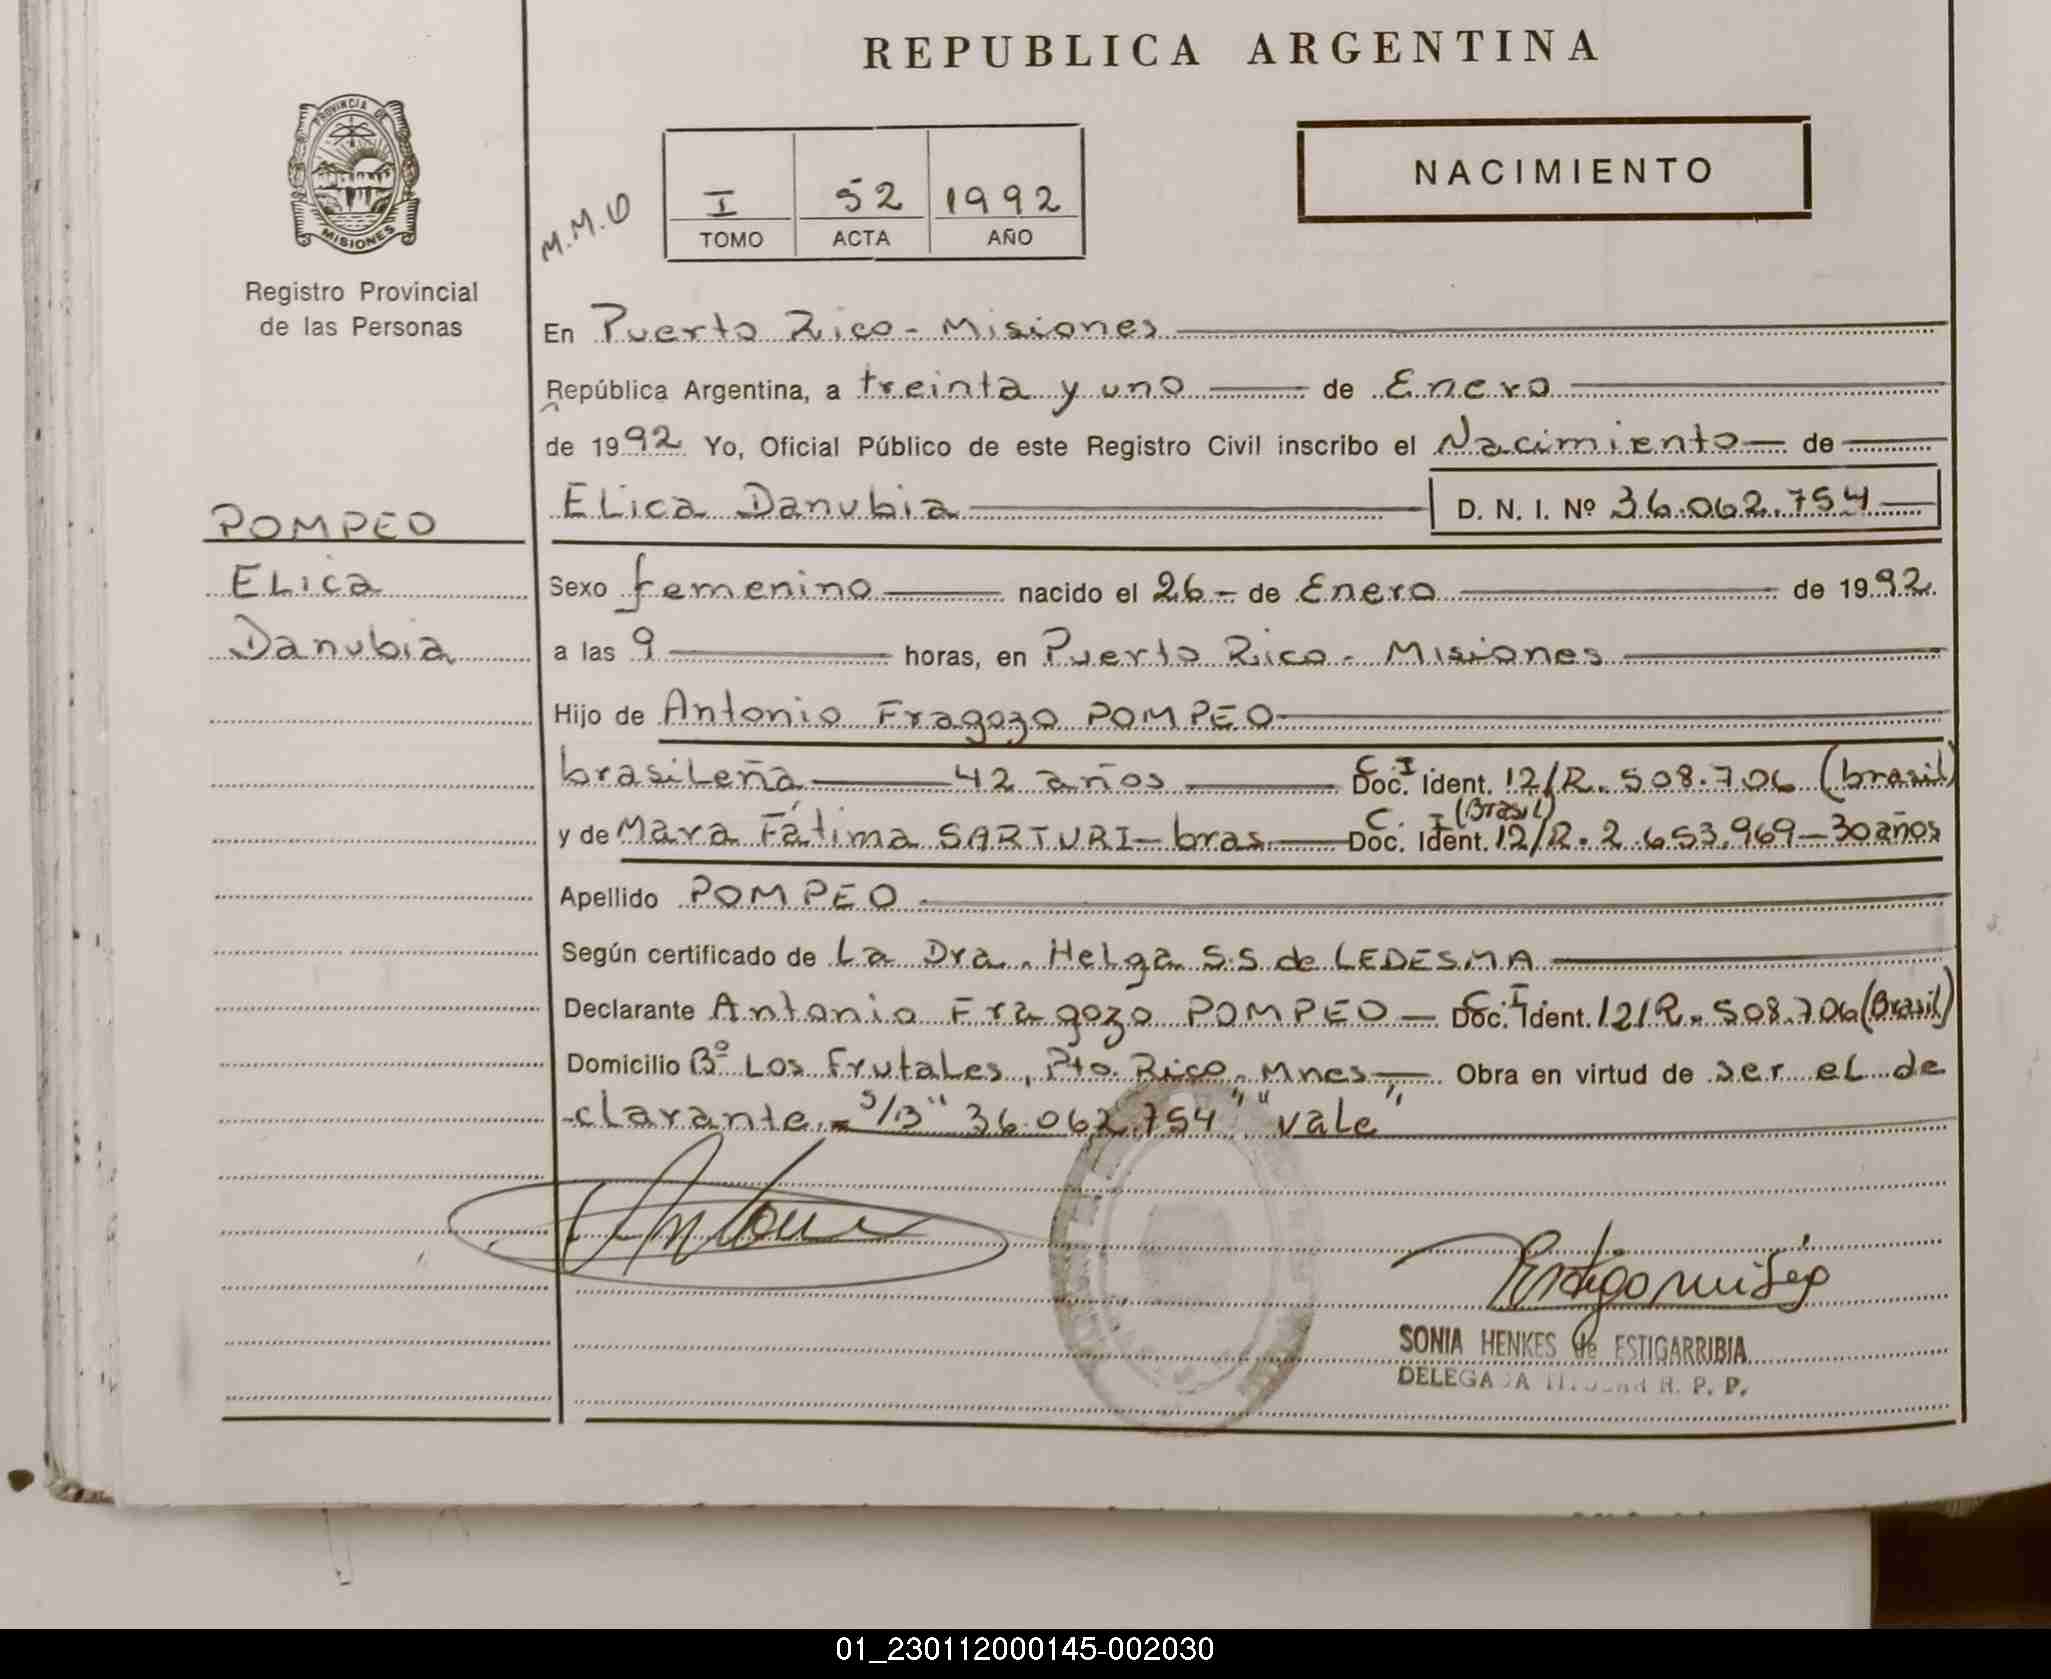 REPUBLICA ARGENTINA
PROVINCIA DE
MISIONES
Registro Provincial
de las Personas
M.M.
I 52 1992
TOMO ACTA AÑO
NACIMIENTO
En Puerto Rico - Misiones
República Argentina, a treinta y uno de Enero
de 1992 Yo, Oficial Público de este Registro Civil inscribo el Nacimiento de
POMPEO
Elica
Danubia
Elica Danubia D. N. I. Nº 36.062.754
Sexo femenino nacido el 26 - de Enero de 1992.
a las 9 horas, en Puerto Rico - Misiones
Hijo de Antonio Fragozo POMPEO
brasileña 42 años C. I Doc. Ident. 12/R. 508.706 (brasil)
y de Mara Fátima SARTURI - bras. C. I (Brasil) Doc. Ident. 12/R. 2.653.969 - 30 años
Apellido POMPEO
Según certificado de la Dra. Helga S.S. de LEDESMA
Declarante Antonio Fragozo POMPEO - C. I Doc. Ident. 12/R. 508.706 (Brasil)
Domicilio Bº Los Frutales, Pto. Rico - Mnes - Obra en virtud de ser el de
-clarante.- S/B " 36.062.754 " "vale"
SONIA HENKES de ESTIGARRIBIA
DELEGADA TITULAR R. P. P.
01_230112000145-002030